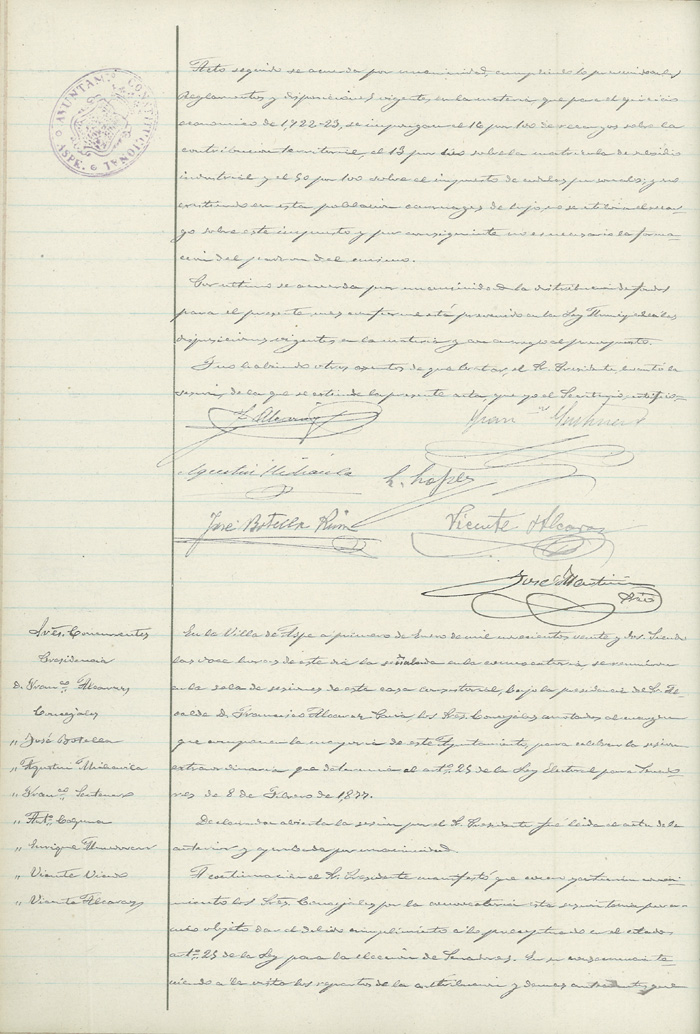 AYUNTAM. CONSTITUCIONAL
ASPE
Acto seguido se acuerda por unanimidad, cumpliendo lo prevenido en los
Reglamentos y disposiciones vigentes en la materia, que para el ejercicio
económico de 1.922-23, se impongan el 16 por 100 de recargo sobre la
contribucion territorial, el 13 por 100 sobre la matricula de subsidio
industrial y el 50 por 100 sobre el impuesto de cedulas personales; y no
existiendo en esta poblacion carruages de lujo, no se utiliza el recar-
go sobre este impuesto y por consiguiente no es necesaria la forma-
cion del padron del mismo.
Por ultimo se acuerda por unanimidad la distribucion de fondos
para el presente mes conforme está prevenido en la Ley Municipal
disposiciones vigentes en la materia y con arreglo al presupuesto.
Y no habiendo otros asuntos de que tratar, el Sr. Presidente levantó la
sesion, de la que se extiende la presente acta, que yo el Secretario, certifico.
F. Alcaraz
Agustin Mirambla
L. Lopez
José Botella
Vicente Alcaraz
José Martinez
Sres. Concurrentes
Presidencia
D. Franco. Alcaraz
Concejales
" José Botella
" Agustin
" Franco.
" Anto.
" Enrique
" Vicente
" Vicente Alcaraz
En la Villa de Aspe a primero de Enero de mil novecientos veinte y dos. Siendo
las doce horas de este dia la señalada en la convocatoria, se reunieron
en la sala de sesiones de esta casa consistorial, bajo la presidencia del Sr. Al-
calde D. Francisco Alcaraz los Sres. Concejales anotados al margen
que componen la mayoria de este Ayuntamiento, para celebrar la sesion
extraordinaria que determina el artº. 25 de la Ley Electoral para Senado-
res de 8 de Febrero de 1.877.
Declarada abierta la sesion por el Sr. Presidente fué leida el acta de la
anterior y aprobada por unanimidad.
A continuacion el Sr. Presidente manifestó que
los Sres. Concejales por la convocatoria esta sesion tenia por
objeto dar el debido cumplimiento a lo preceptuado en el citado
artº. 25 de la Ley para la eleccion de Senadores. En su consecuencia te-
niendo a la vista los repartos de la contribucion y demas antecedentes que